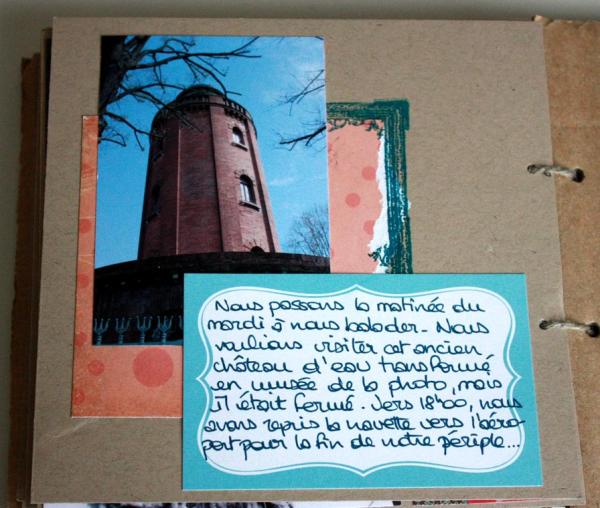 Nous passons la matinée du
mardi à nous balader. Nous
voulions visiter cet ancien
château d'eau transformé
en musée de la photo, mais
il était fermé. Vers 18h00, nous
avons repris la navette vers l'aéro-
port pour la fin de notre périple...